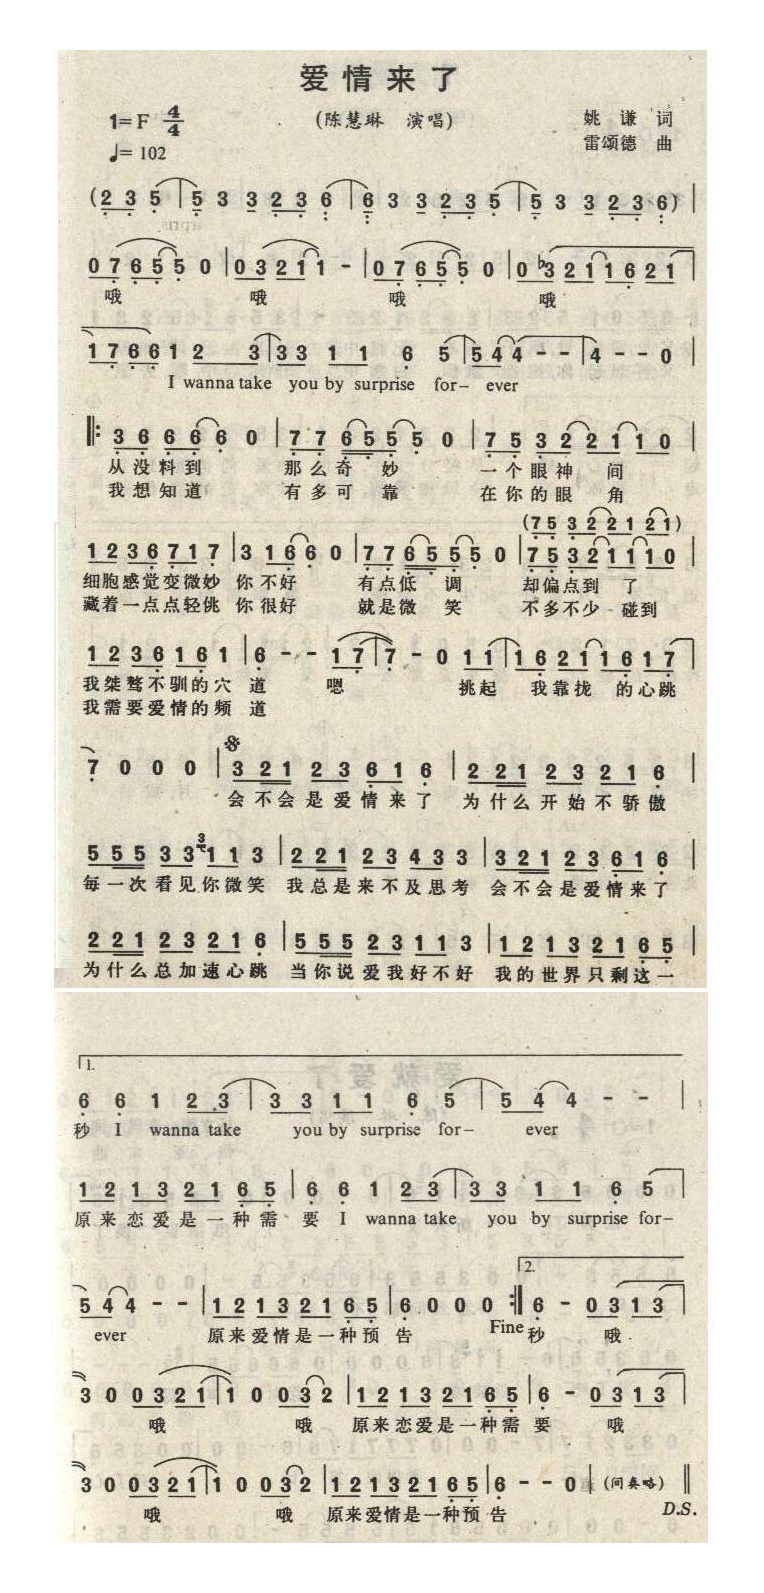 爱情来了
1=F 4/4
(陈慧琳 演唱)
姚谦 词
♩=102
雷颂德 曲
(2 3 5 5 3 3 2 3 6 6 3 3 2 3 5 5 3 3 2 3 6) |
0 7 6 5 5 0 | 0 3 2 1 1 - | 0 7 6 5 5 0 | 0 ♭3 2 1 1 6 2 1 |
哦 哦 哦 哦
1 7 6 6 1 2 3 | 3 3 1 1 6 5 | 5 4 4 - - | 4 - - 0 |
I wanna take you by surprise for- ever
‖: 3 6 6 6 6 0 | 7 7 6 5 5 5 0 | 7 5 3 2 2 1 1 0 |
从没料到 那么奇妙 一个眼神间
我想知道 有多可靠 在你的眼角
(7 5 3 2 2 1 2 1)
1 2 3 6 7 1 7 | 3 1 6 6 0 | 7 7 6 5 5 5 0 | 7 5 3 2 1 1 1 0 |
细胞感觉变微妙 你不好 有点低调 却偏点到了
藏着一点点轻佻 你很好 就是微笑 不多不少 碰到
1 2 3 6 1 6 1 | 6 - - 1 7 | 7 - 0 1 1 | 1 6 2 1 1 6 1 7 |
我桀骜不驯的穴道 嗯 挑起 我靠拢 的心跳
我需要爱情的频道
7 0 0 0 | 3 2 1 2 3 6 1 6 | 2 2 1 2 3 2 1 6 |
会不会是爱情来了 为什么开始不骄傲
5 5 5 3 3 3 1 1 3 | 2 2 1 2 3 4 3 3 | 3 2 1 2 3 6 1 6 |
每一次看见你微笑 我总是来不及思考 会不会是爱情来了
2 2 1 2 3 2 1 6 | 5 5 5 2 3 1 1 3 | 1 2 1 3 2 1 6 5 |
为什么总加速心跳 当你说爱我好不好 我的世界只剩这一
1.
6 6 1 2 3 | 3 3 1 1 6 5 | 5 4 4 - - |
秒 I wanna take you by surprise for- ever
1 2 1 3 2 1 6 5 | 6 6 1 2 3 | 3 3 1 1 6 5 |
原来恋爱是一种需 要 I wanna take you by surprise for-
2.
5 4 4 - - | 1 2 1 3 2 1 6 5 | 6 0 0 0 :‖ 6 - 0 3 1 3 |
ever 原来爱情是一种预告 Fine 秒 哦
3 0 0 3 2 1 | 1 0 0 3 2 | 1 2 1 3 2 1 6 5 | 6 - 0 3 1 3 |
哦 哦 原来恋爱是一种需要 哦
3 0 0 3 2 1 | 1 0 0 3 2 | 1 2 1 3 2 1 6 5 | 6 - - 0 | (间奏略) ‖
哦 哦 原来爱情是一种预告 D.S.